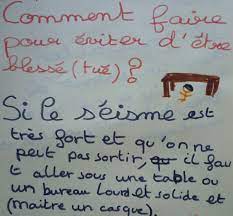 Comment faire
pour éviter d'être
blessé (tué) ?
Si le séisme est
très fort et qu'on ne
peut pas sortir, il fau
t aller sous une table ou
un bureau lourd et solide et
(maitre un casque).